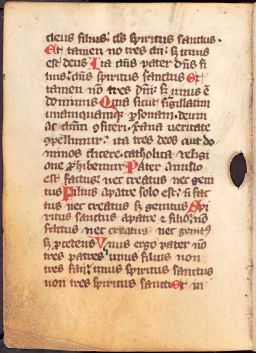 deus filius: ds spiritus sanctus.
Et tamen no tres dii: sz unus
est deus Ita dns pater dns fi
lius: dns spiritus sanctus Et
tamen nō tres dni: sz unus ē
dominus Quia sicut singillatim
unamquamqz psonam. deum
ac dnm 9fiteri. xp̄ana veritate
9pellimur. ita tres deos aut do
minos dicere. catholica religi
one phibemur Pater a nullo
est factus: nec creatus nec geni
tus Filius a patre solo est: n̄ fac
tus nec creatus sz genitus Spi
ritus sanctus a patre & filio: nō
factus nec creatus nec genitꝰ
sz pcedens Unus ergo pater nō
tres patres unus filius non
tres filii: unus spiritus sanctus
non tres spiritus sancti Et in